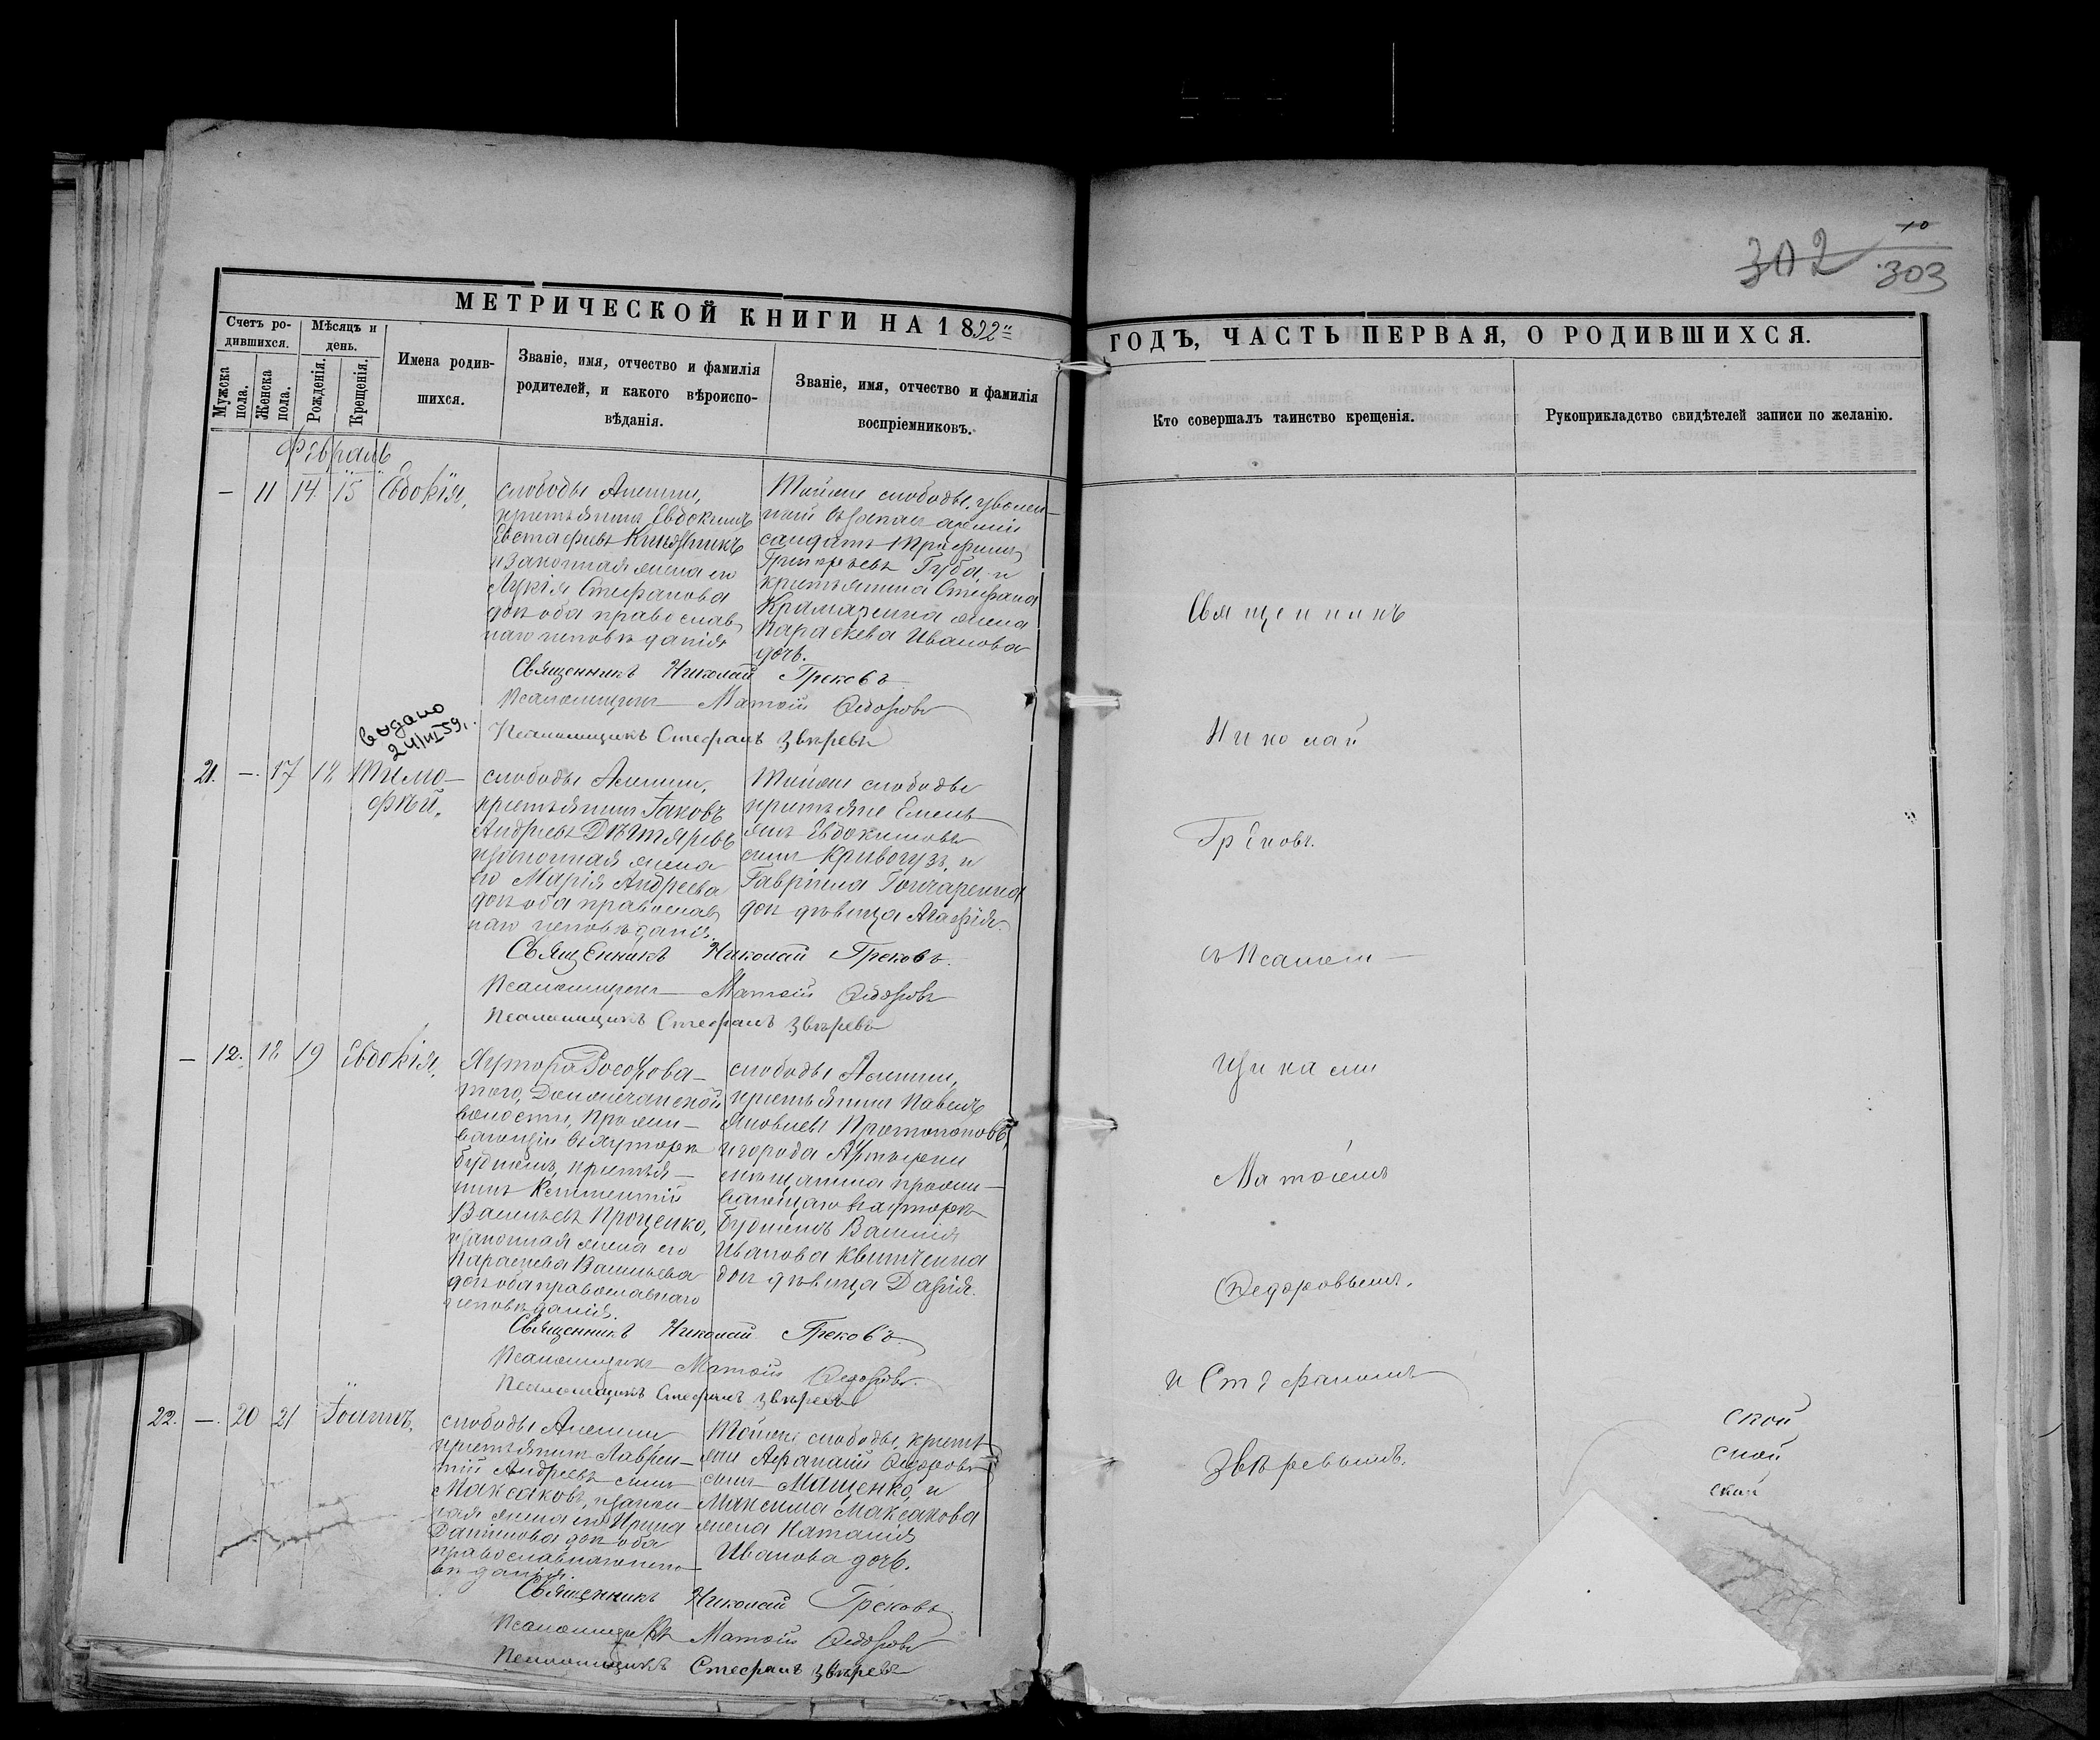 302 10
303
МЕТРИЧЕСКОЙ КНИГИ НА 1892й ГОДЪ, ЧАСТЬ ПЕРВАЯ, О РОДИВШИХСЯ.
Счетъ родившихся.
Мужска пола.
Женска пола.
Мѣсяцъ и день.
Рожденія.
Крещенія.
Имена родившихся.
Званіе, имя, отчество и фамилія родителей, и какого вѣроисповѣданія.
Званіе, имя, отчество и фамилія воспріемниковъ.
Кто совершалъ таинство крещенія.
Рукоприкладство свидѣтелей записи по желанію.
Февраль
— 11 14 15 Евдокія,
слободы Алешни,
крестьянинъ Евдокимъ
Евстафіевъ
и законная жена его
Лукія Стефанова
дочь оба православ
наго исповѣданія
Тойже слободы, уволен-
ный въ запас арміи
солдатъ Трофимъ
Григорьевъ Губа, и
крестьянина Стефана
Крамаренка жена
Параскева Иванова
дочь.
Священникъ Николай Грековъ
Псаломщикъ Матѳій Ѳедоровъ
Псаломщикъ Стефанъ Звѣревъ
выдано
24/VI 59 г.
21. — 17 18 Тимо-
фѣй,
слободы Алешни,
крестьянинъ Іаковъ
Андреевъ Дѣтяревъ
и законная жена
его Марія Андреева
дочь оба православ
наго исповѣданія.
Тойже слободы
крестьяне Емель
янъ Евдокимовъ
сынъ Кривогузъ, и
Гавріила Гончаренка
дочь дѣвица Агафія.
Священникъ Николай Грековъ.
Псаломщикъ Матѳій Ѳедоровъ
Псаломщикъ Стефанъ Звѣревъ
— 12. 18 19 Евдокія,
Хутора Росохова-
того,
волости, прожи-
вающій въ хуторѣ
крестья-
нинъ
Васильевъ Проценко,
и законная жена его
Параскева Васильева
дочь оба православнаго
исповѣданія.
слободы Алешни,
крестьянинъ Павелъ
Яковлевъ Протопоповъ,
и города Ахтырки
мѣщанина прожи-
вающаго въ хуторѣ
Василія
Иванова Квитченка
дочь дѣвица Дарія.
Священникъ Николай Грековъ.
Псаломщикъ Матѳій Ѳедоровъ.
Псаломщикъ Стефанъ Звѣревъ
22. — 20 21 Іоаннъ,
слободы Алешни
крестьянинъ Лаврен-
тій Андреевъ сынъ
Максаковъ, и закон-
ная жена его Ирина
Данилова дочь оба
православнаго испо-
вѣданія.
Тойже слободы, кресть
яне Афанасій Ѳедоровъ
сынъ Мащенко, и
Максима Максакова
жена Наталія
Иванова дочь.
Священникъ Николай Грековъ.
Псаломщикъ Матѳій Ѳедоровъ
Псаломщикъ Стефанъ Звѣревъ
Священникъ
Николай
Грековъ.
съ Псалом-
щиками
Матѳіемъ
Ѳедоровымъ.
и Стефаномъ
Звѣревымъ.
ской
ской
ской